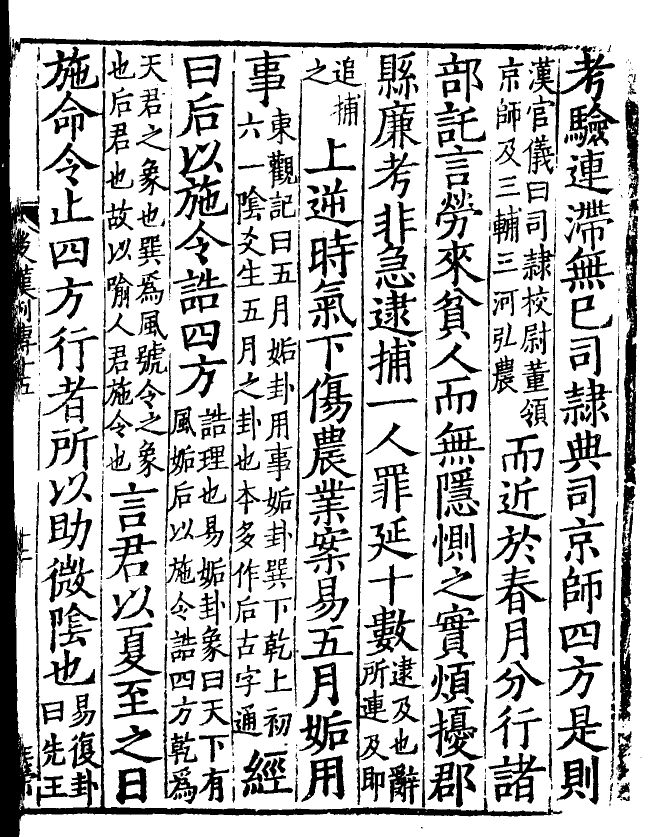 考驗連滯無已司隸典司京師四方是則
漢官儀曰司隸校尉董領
京師及三輔三河弘農
而近於春月分行諸
部託言勞來貧人而無隱惻之實煩擾郡
縣廉考非急逮捕一人罪延十數
逮及也辭
所連及即
追捕
之
上逆時氣下傷農業案易五月姤用
事
東觀記曰五月姤卦用事姤卦巽下乾上初
六一陰爻生五月之卦也本多作后古字通
經
曰后以施令誥四方
誥理也易姤卦象曰天下有
風姤后以施令誥四方乾為
天君之象也巽為風號令之象
也后君也故以喻人君施令也
言君以夏至之日
施命令止四方行者所以助微陰也
易復卦
曰先王